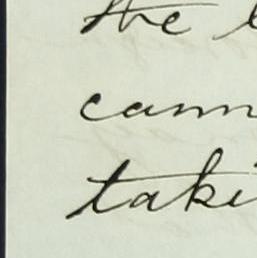 the
cann
taki